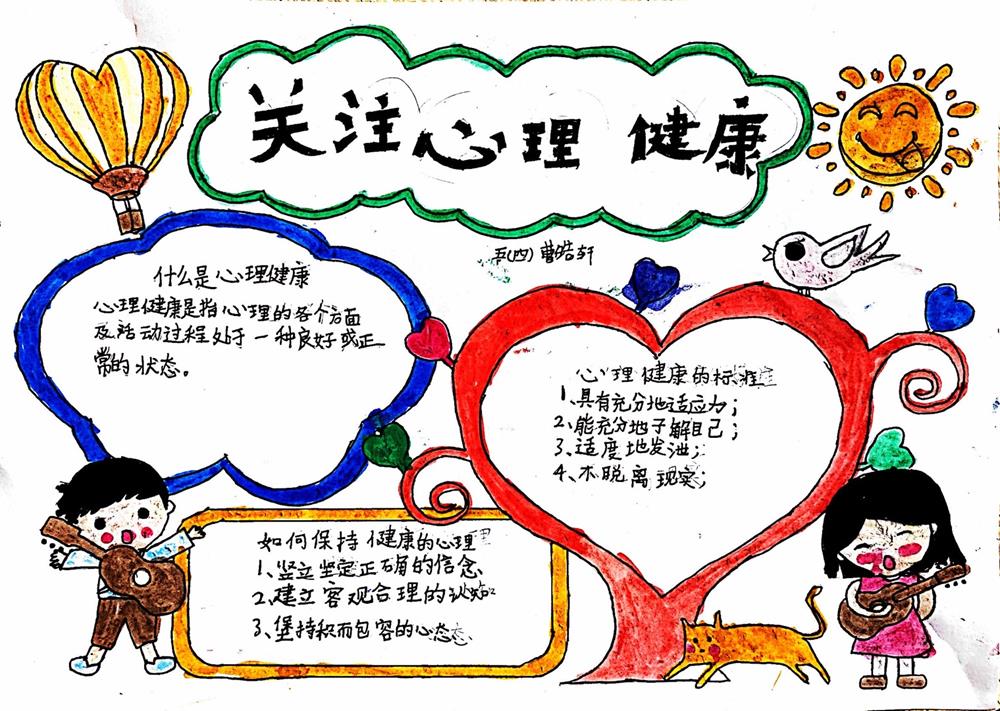 关注心理健康
五(四) 曹皓轩
什么是心理健康
心理健康是指心理的各个方面
及活动过程处于一种良好或正
常的状态。
心理健康的标准
1、具有充分地适应力;
2、能充分地了解自己;
3、适度地发泄;
4、不脱离现实;
如何保持健康的心理
1、竖立坚定正确的信念、
2、建立客观合理的认知
3、堡持积而包容的心态